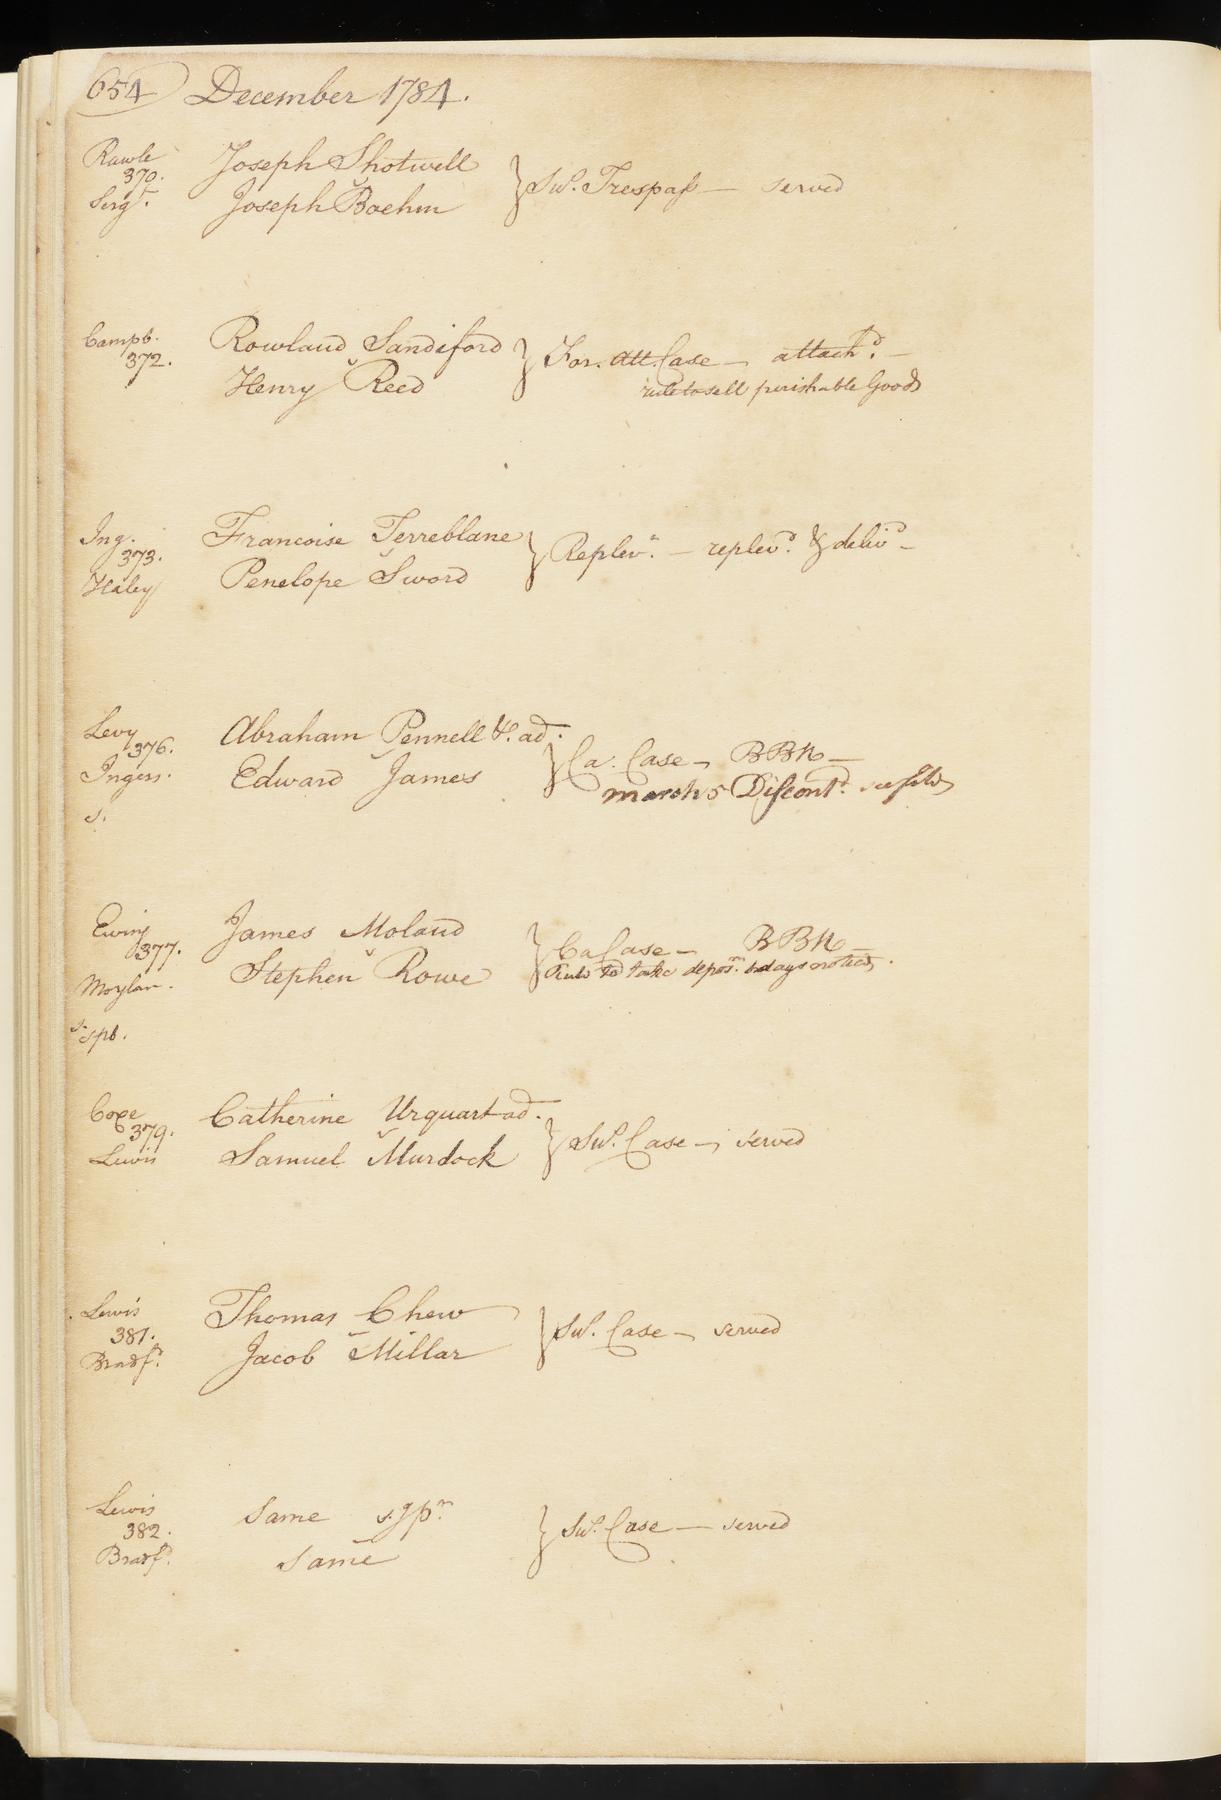 654 December 1784.
Rawle Joseph Shotwell
370. } Sus. Trespass — served
Sergt. v Joseph Boehm
Campb. Rowland Sandiford
372. } For. Att. Case — attachd. —
v Henry Reed rule to sell perishable Goods
Ing. Francoise Terreblane
373. } Replevn. — replevd. & delivd —
Haley v Penelope Sword
Levy Abraham Pennell &c. ad.
376. } Ca. Case — BBn —
Ingers. v Edward James March 5 Discontd.
s.
Ewing James Moland
377. } Ca Case — BBn —
Moylan. v Stephen Rowe Rule to take deposn. days notice.
s. spb.
Cope Catherine Urquart ad.
379. } Sus. Case — served
Lewis v Samuel Murdock
Lewis Thomas Chew
381. } Sus. Case — served
Bradfd. v Jacob Millar
Lewis Same
382. } Sus. Case — served
Bradfd. v Same